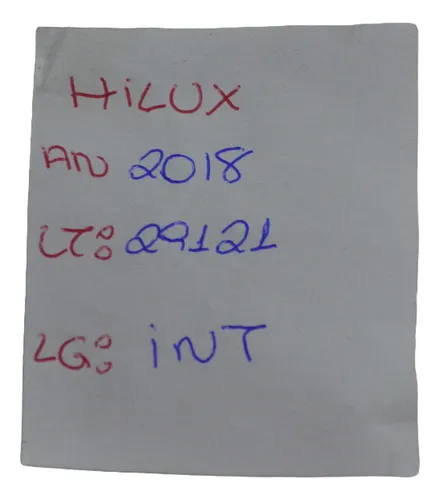 HiLUX
AN 2018
LT: 29121
LG: iNT